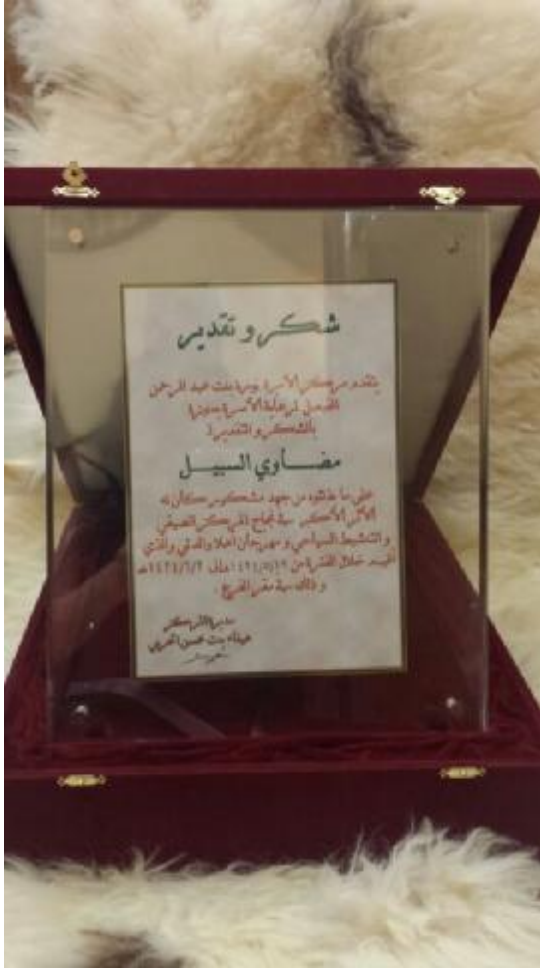 شكر و تقدير
يتقدم مركز الأميرة نورة بنت عبد الرحمن
الفيصل لرعاية الأسرة
بالشكر و التقدير لـ
مضاوي السبيل
على ما بذلتوه من جهد مشكور كان له
الأثر الأكبر في نجاح المركز الصيفي
و التنشيط السياحي و مهرجان أهلا والذي
أقيم خلال الفترة من إلى ١٤٢٤/٦/٢هـ
و ذلك في مقر الفرع .
مديرة المركز
هيفاء بنت محسن الحربي